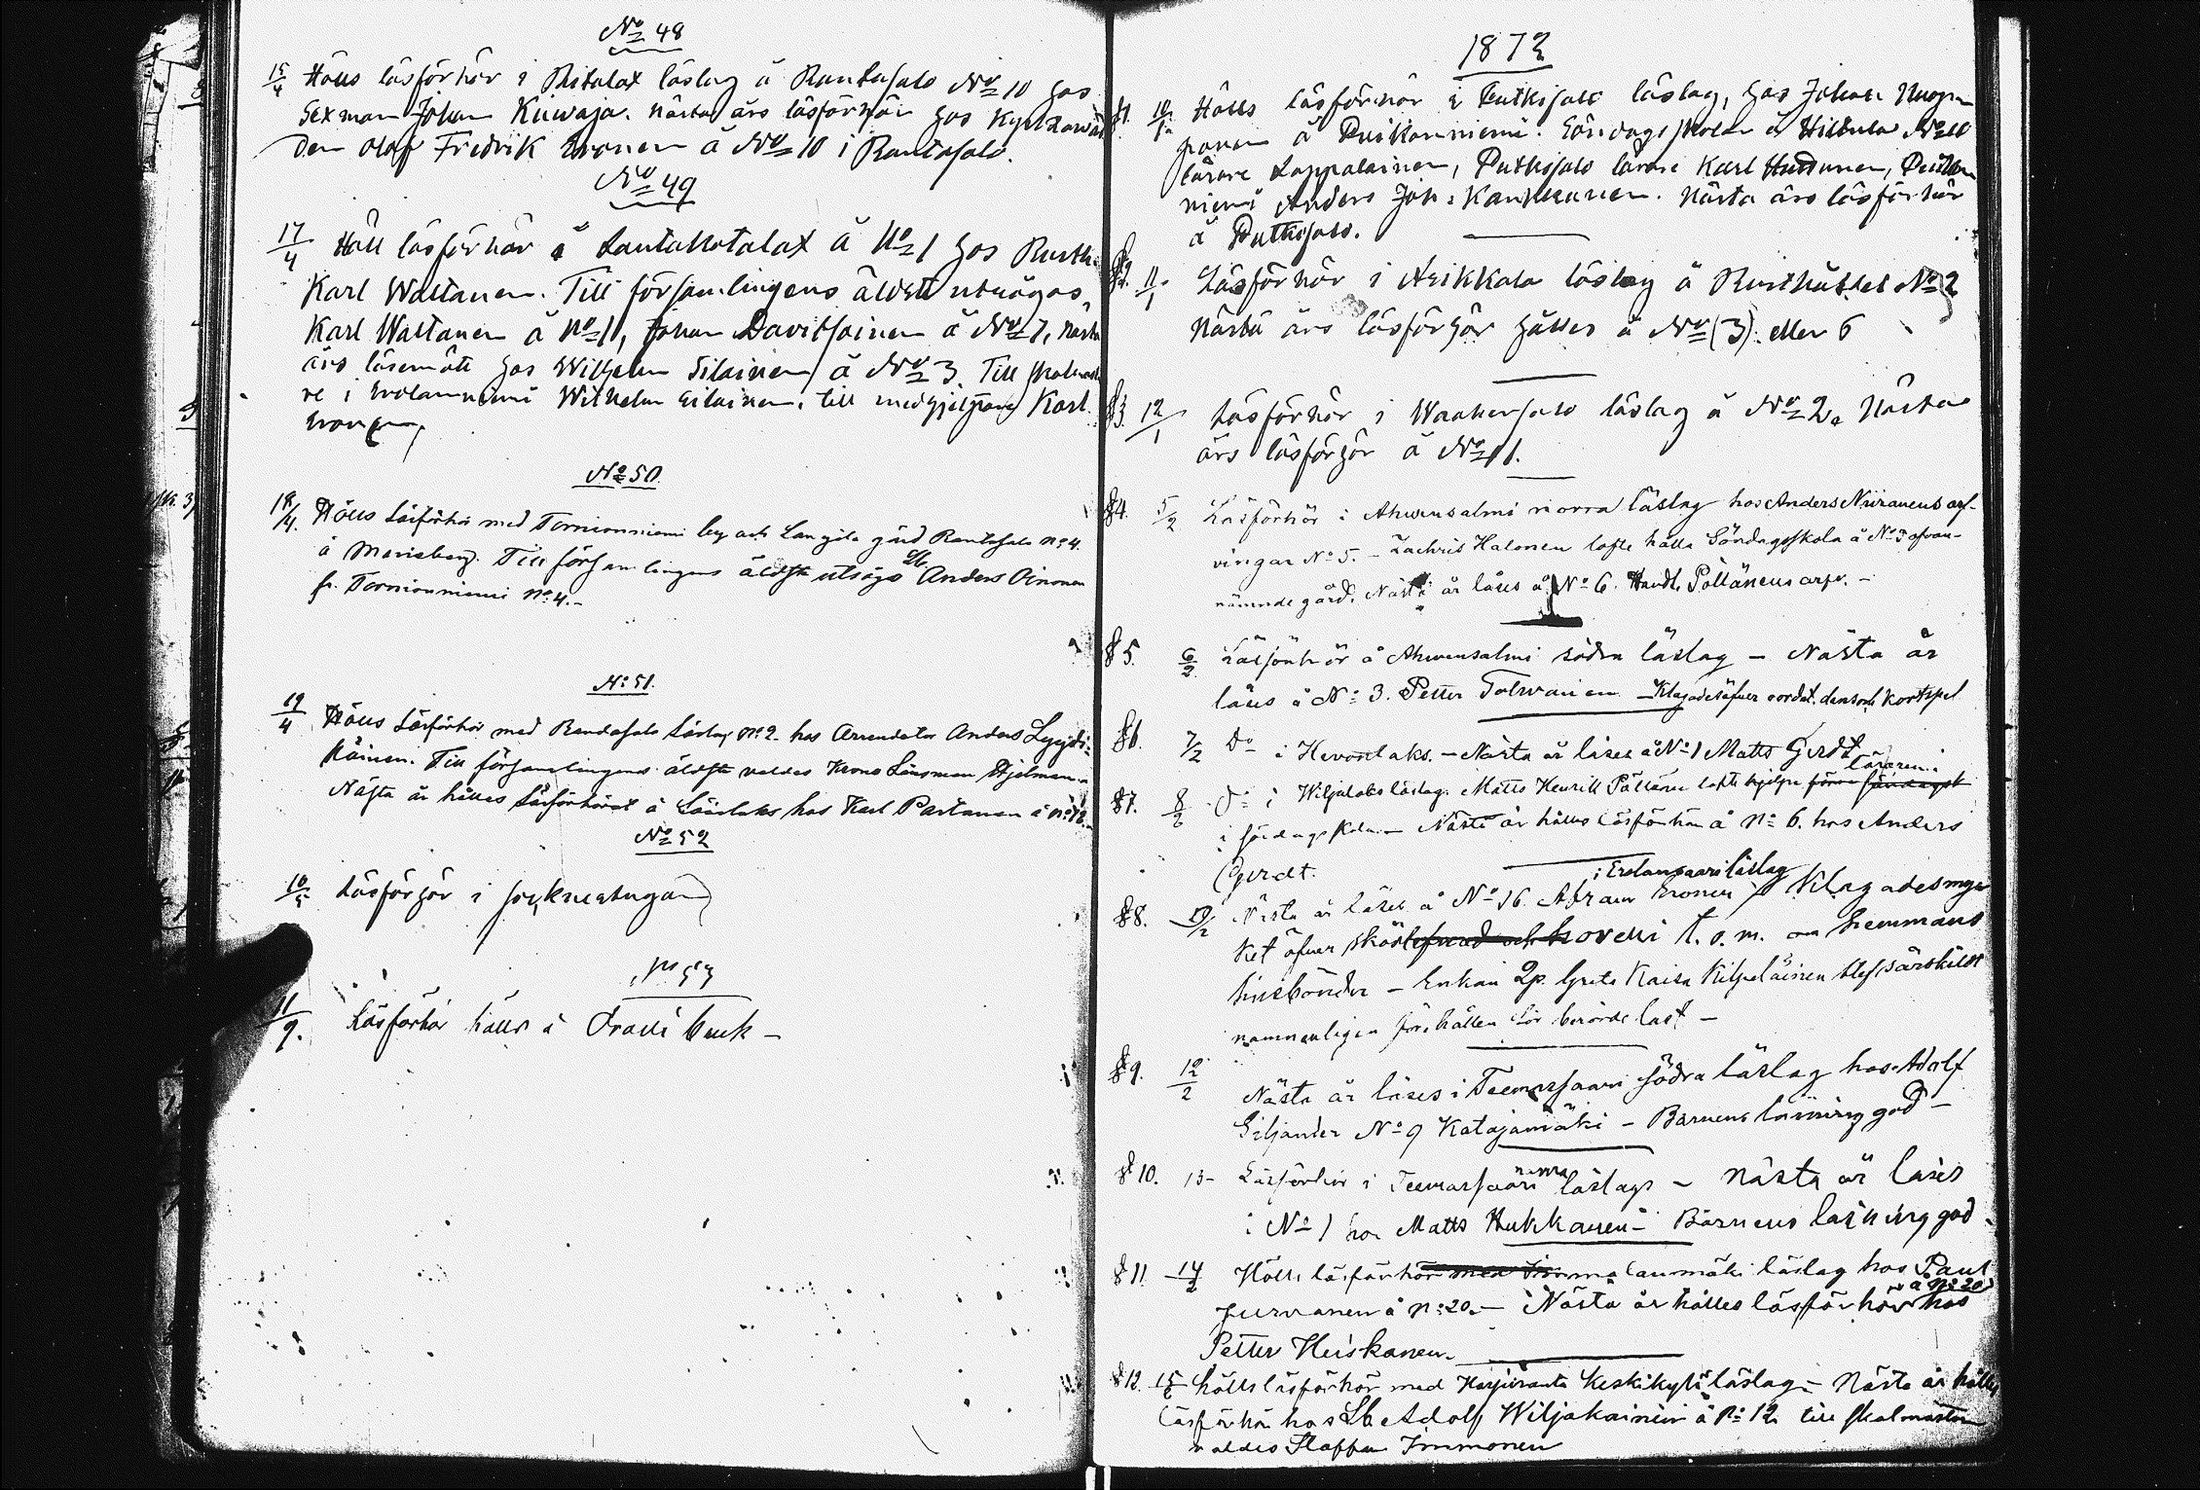 No 48
15/4 Hölls läsförhör i Pistalax läslag å Rantasalo No 10 hos
Sexman Johan Kuwaja. Nästa års läsförhör hos Kyrkowär
den Olof Fredrik Eronen å No 10 i Rantasalo.
No 49
17/4 Höll läsförhör å Lautakotalax å No 1 hos Rusth:
Karl Waltanen. Till församlingens äldste utsågos,
Karl Waltanen å No 1, Johan Davitsainen å No 7, Nästa
års läsemöte hos Wilhelm Silainen å No 3. Till skolmästa
re i Erolanniemi Wilhelm Silainen, till medhjelpare Karl
Eronen
No 50
18/4. Hölls Läsförhör med Tornionniemi by och Langila gård Rantasalo No 4
å Marieberg. Till församlingens äldste utsågs Lb. Anders Oinonen
fr. Tornionniemi No 4.-
No 51.
19/4 Hölls Läsförhör med Randasalo Läslag No 2 hos Arrendator Anders Lyyti-
käinen. Till församlingens äldste valdes Krono Länsman Hjelman.
Nästa år hålles Läsförhöret å Läslaks hos Karl Partanen å No 12.
No 52
10/5 Läsförhör i sockenstugan
No 53
11/9. Läsförhör hölls å Oravi bruk -
1872
§1. 10/1 Hölls läsförhör i Putkisalo läslag, hos Johan Nuopponen
å Puikonniemi. Söndagsskolan å Hiltula No 10
lärare Lappalainen, Putkisalo lärare Karl Huttunen,
niemi Anders Joh: Kankkunen. Nästa års läsförhör
å Putkisalo.
§2. 11/1 Läsförhör i Heikkala läslag å Rusthållet No 2
Nästa års läsförhör hålles å No (3) eller 6
§3. 12/1 Läsförhör i Waahersalo läslag å No 2. Nästa
års läsförhör å No 11.
§4. 5/2 Läsförhör i Ahvensalmi norra läslag hos Anders Niiranens arf-
vingar No 5. - Zachris Halonen lofte hålla Söndagsskola å No 5 ofvan-
nämnde gård. Nästa år läses å No 6. Handl. Pöllänens arfv. -
§5. 6/2 Läsförhör å Ahvensalmi södra läslag - Nästa år
läses å No 3. Petter Tolvanen - Klagades öfver oordet. dans och kortspel
§6. 7/2 Do i Hevonlaks. - Nästa år läses å No 1 Matts Gerdt
läraren
§7. 8/2 Do i Wiljalaks läslag. Matts Henrik Pöllänen lofte hjelpa söndagsk
i söndagsskola. - Nästa år hålles läsförhör å No 6. hos Anders
Gerdt.
i Erolansaari läslag
§8. Nästa år läses å No 16. Abram Eronen. Klagades myc
ket öfver t. o. m. om hemmans
husbönder - Enkan Grete Kaisa Kilpeläinen blef särskildt
namnenligen förehållen för berörde last -
§9. 12/2 Nästa år läses i Teemassaari södra läslag hos Adolf
Siljander No 9 Katajamäki - Barnens läsning god -
§10. 13- Läsförhör i Teemassaari norra läslags - Nästa år läses
i No 1 hos Matts Hukkanen - Barnens läsning god.
§11. 14/2 Hölls läsförhör lanmäki läslag hos Paul
Jurvanen å No 20. - Nästa år hålles läsförhör hos å No 20
Petter Heiskanen.
§12. 15/2 hölls läsförhör med Harjuranta Keskikylä läslag - Nästa år hålles
läsförhör hos Lb Adolf Wiljakainen å No 12 till skolmästare
valdes Staffan Immonen